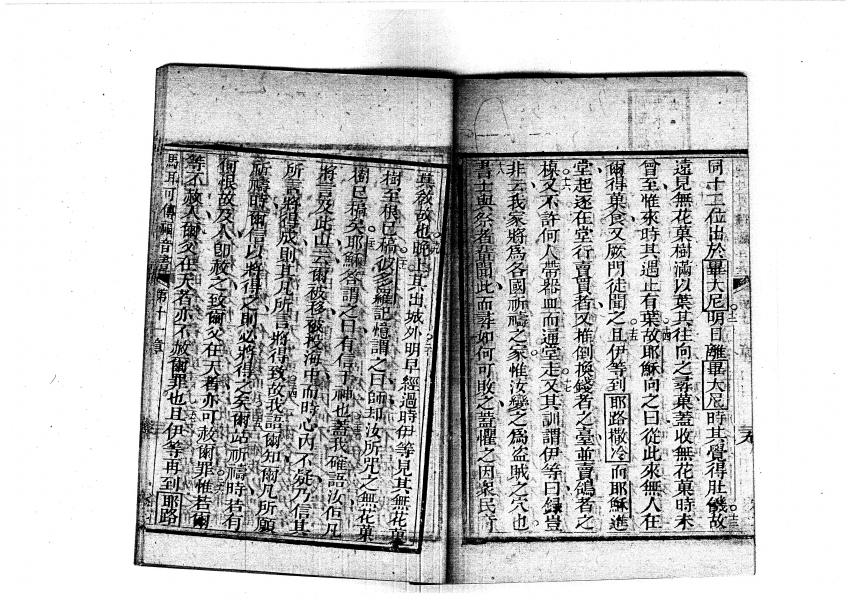 同十二位出於畢大尼明日離畢大尼時其覺得肚饑故
遠見無花菓樹滿以葉其往向之尋菓蓋收無花菓時未
曾至惟來時其遇止有葉故耶穌向之曰從此來無人在
爾得菓食又厥門徒聞之且伊等到耶路撒冷而耶穌進
堂起逐在堂行賣買者又推倒換錢者之臺並賣鴿者之
櫈又不許何人帶器皿而通堂走又其訓謂伊等曰錄豈
非云我家將為各國祈禱之家惟汝變之為盜賊之穴也
書士與祭者首聞此而尋如何可敗之蓋懼之因衆民奇
其教故也晚上其出城外明早經過時伊等見其無花菓
樹至根已槁彼多羅記憶謂之曰師却汝所咒之無花菓
樹已槁矣耶穌答謂之曰有信于神也蓋我確語汝佀凡
將言及此山云爾被移被投海中而時心內不疑乃信其
所言將得成則其凡所言將得致故我語爾知爾凡所願
所禱時爾信以將得之則必將得之矣爾站祈禱時若有
何恨故及人即赦之致爾父在天者亦可赦爾罪惟若爾
等不赦人爾父在天者亦不赦爾罪也且伊等再到耶路
馬耳可傳福音書 第十一章